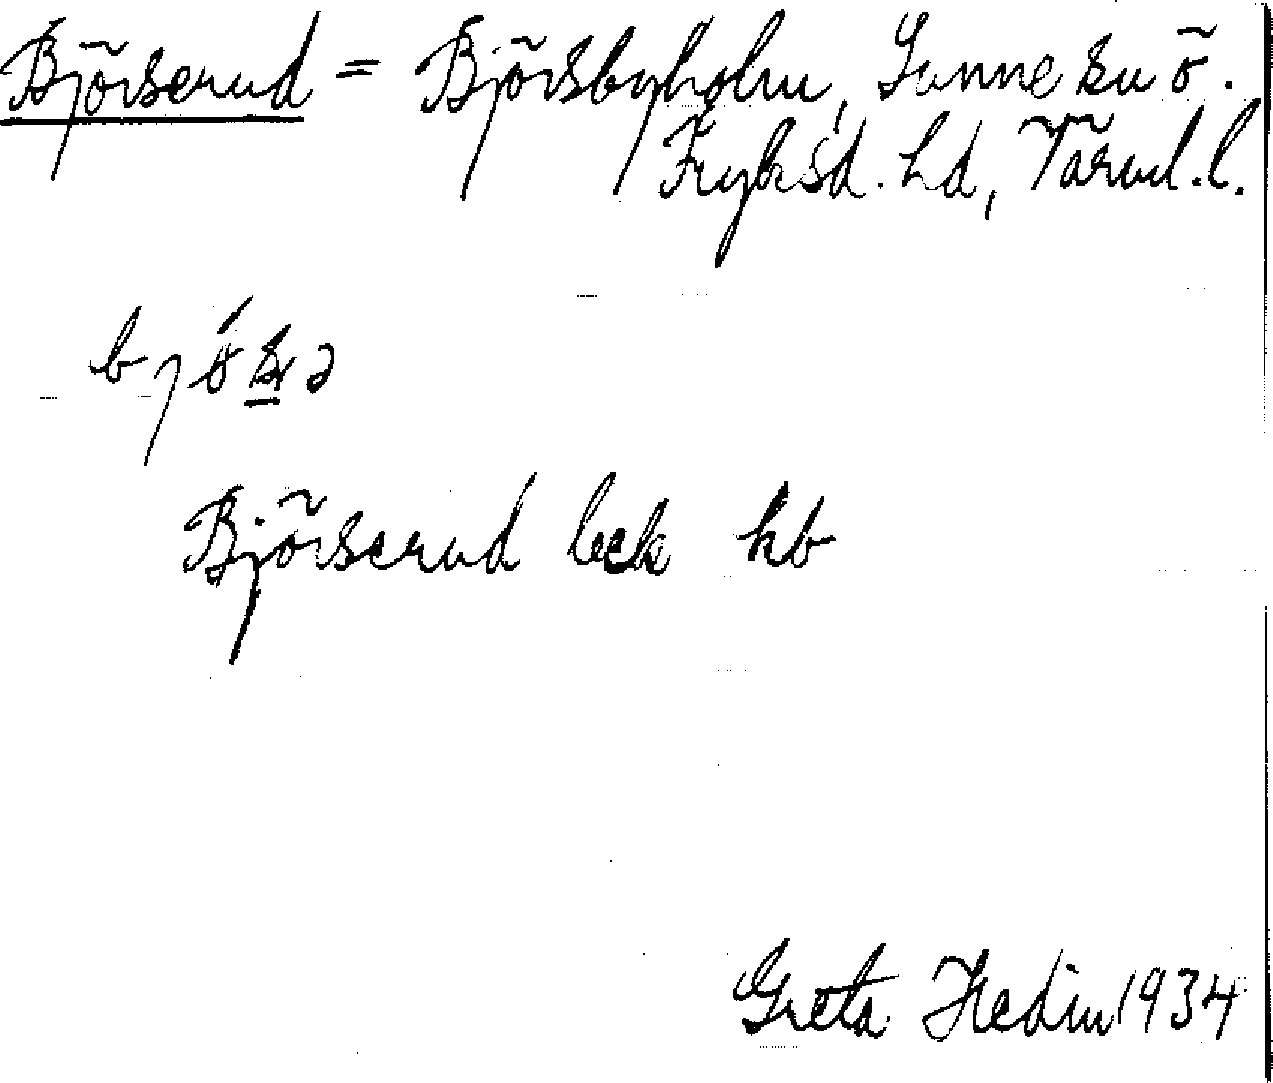 Björserud = Björsbyholm, Sunne sn ö.
Fryksd. hd, Värml. l.
Björserud beck kb
Greta Hedin 1934